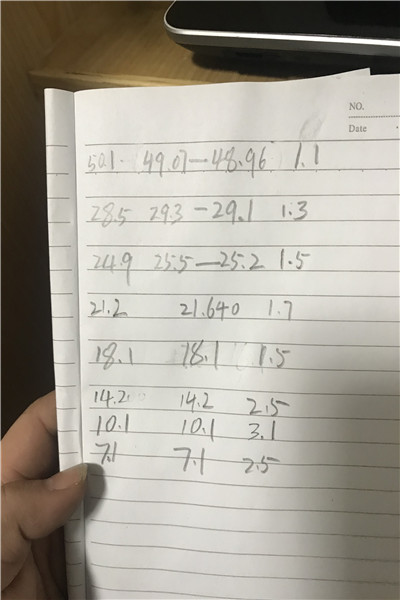 NO.
Date
50.1 49.07—48.96 1.1
28.5 29.3-29.1 1.3
24.9 25.5—25.2 1.5
21.2 21.640 1.7
18.1 18.1 1.5
14.2 14.2 2.5
10.1 10.1 3.1
7.1 7.1 2.5